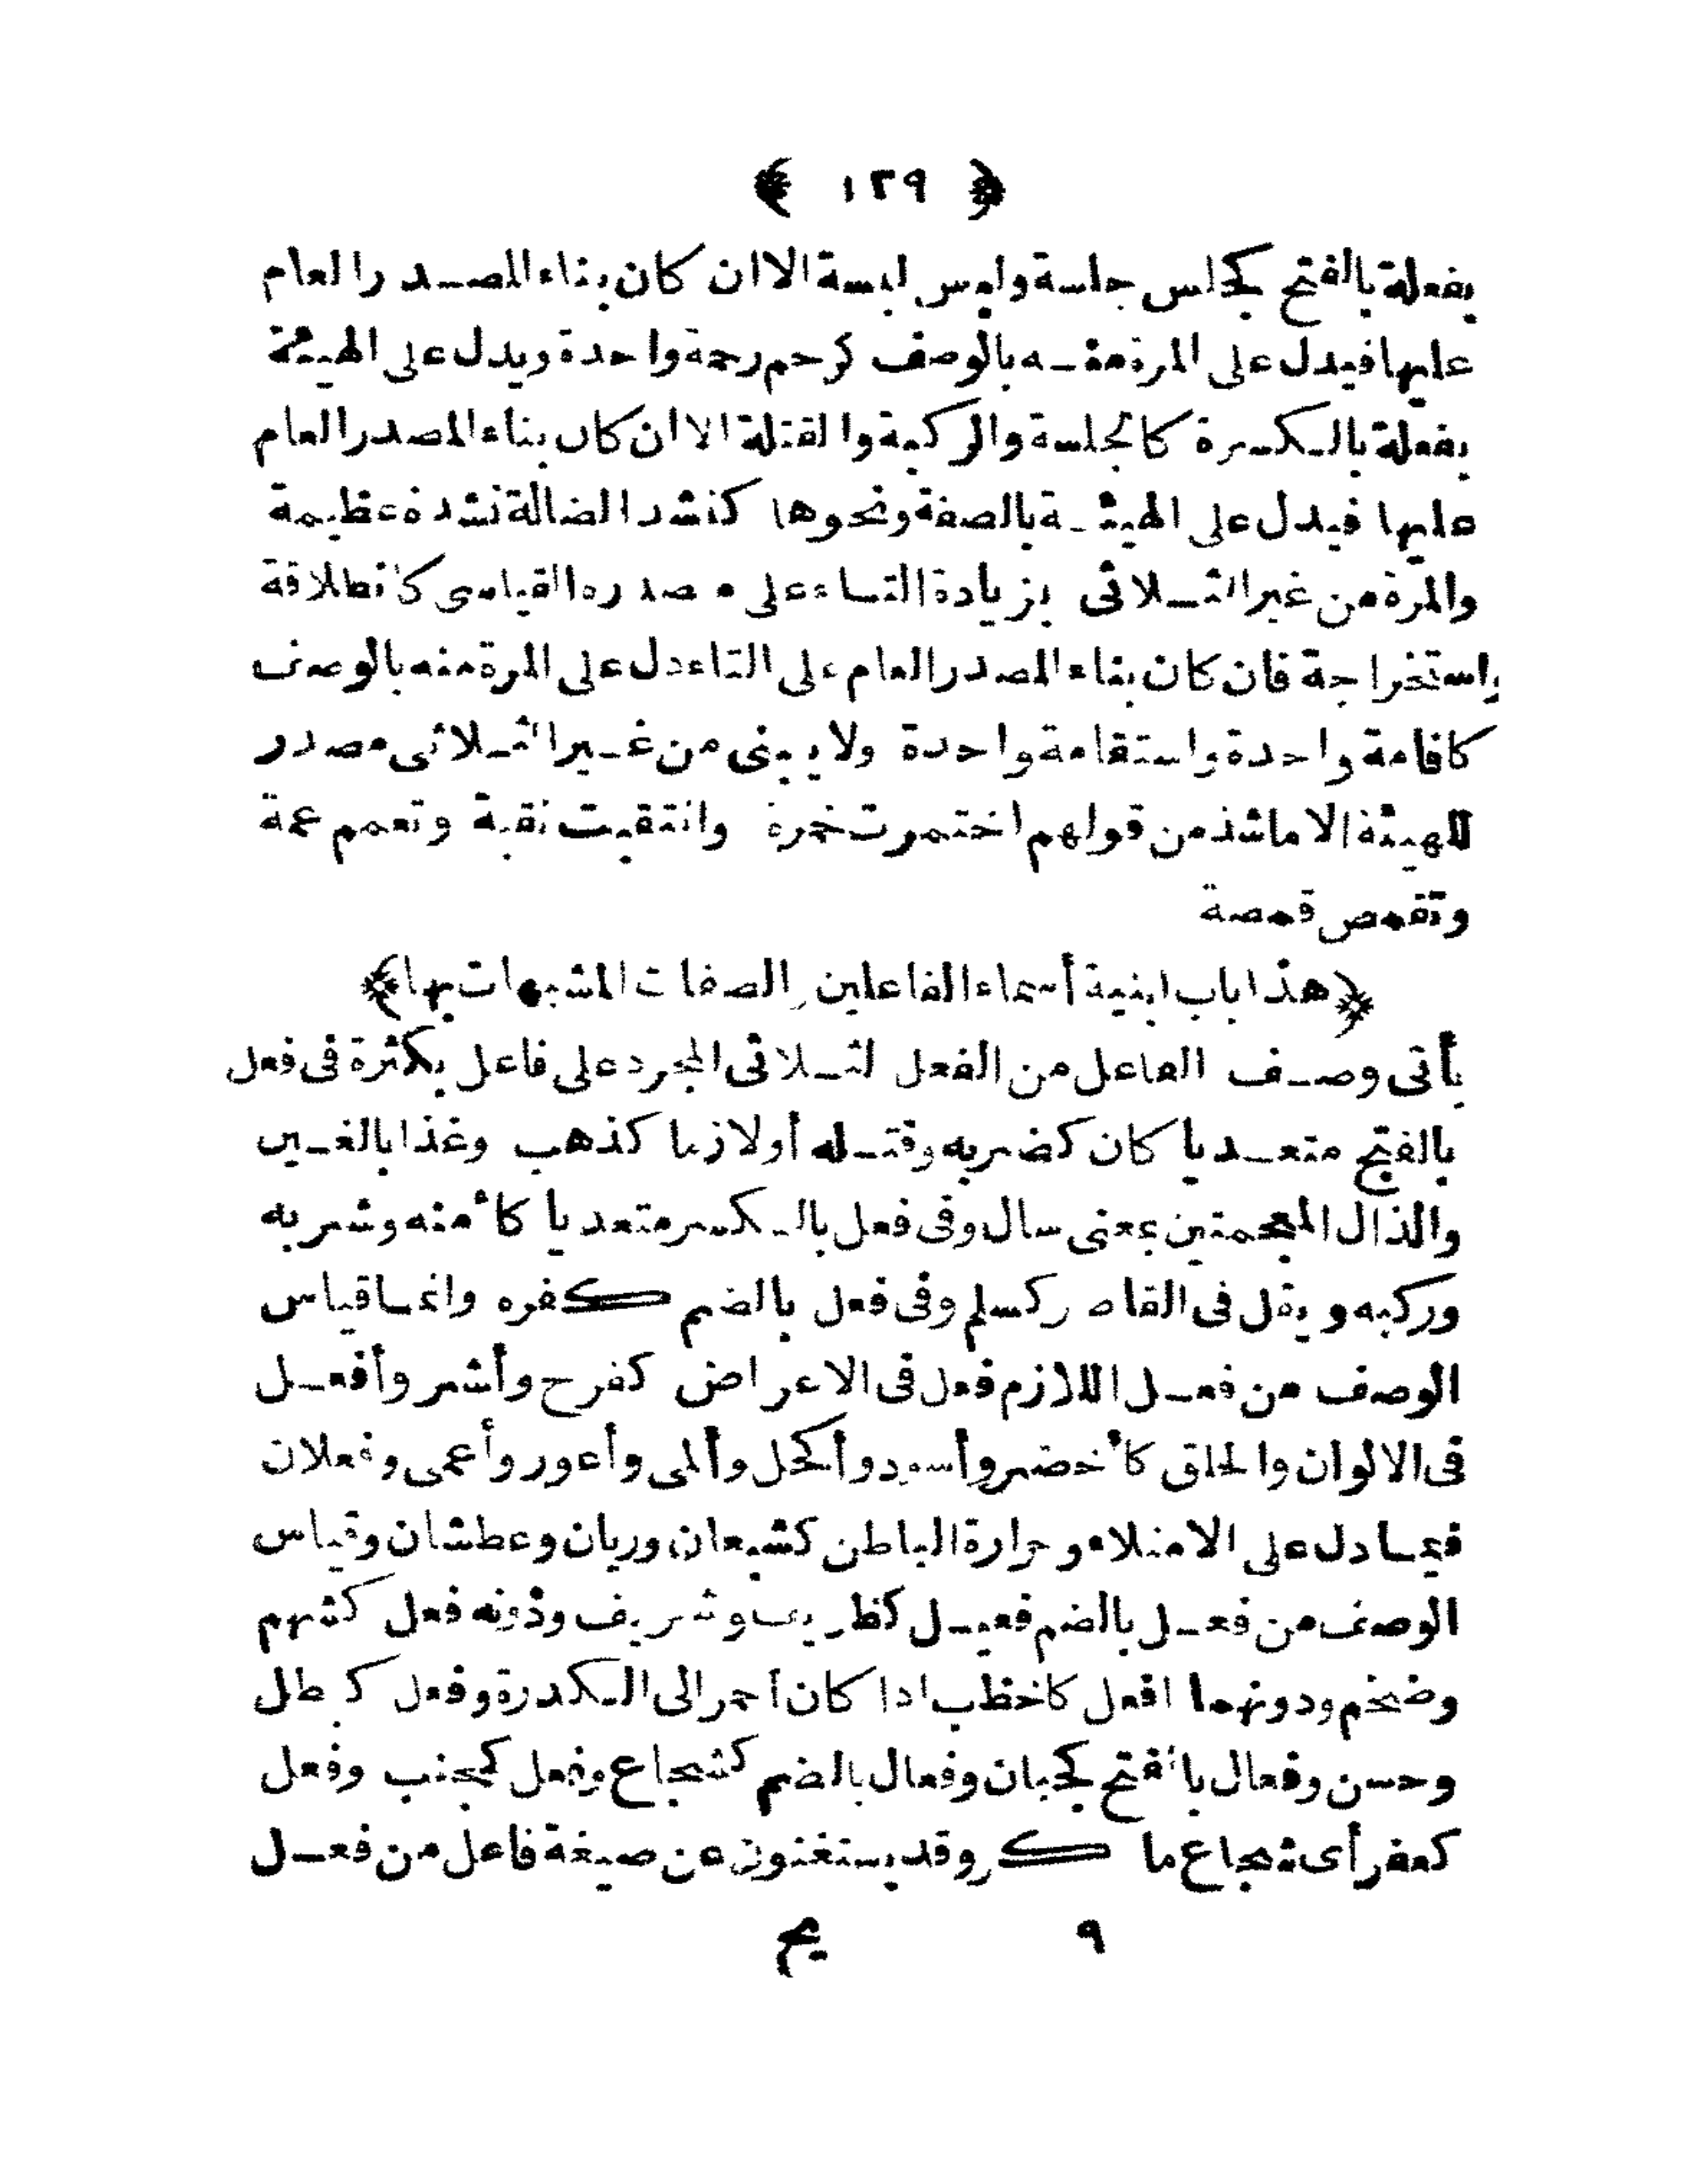 ﴿ ١٢٩ ﴾
بفعلة بالفتح كجلس جلسة ولبس لبسة الا ان كان بناء المصدر العام
عليها فيدل على المرة منه بالوصف كرحم رحمة واحدة ويدل على الهيئة
بفعلة بالكسرة كالجلسة والركبة والقتلة الا ان كان بناء المصدر العام
عليها فيدل على الهيئة بالصفة ونحوها كنشد الضالة نشدة عظيمة
والمرة من غير الثلاثى بزيادة التاء على مصدره القياسى كانطلاقة
واستخراجة فان كان بناء المصدر العام على التاء دل على المرة منه بالوصف
كاقامة واحدة واستقامة واحدة ولا يبنى من غير الثلاثى مصدر
للهيئة الا ماشذ من قولهم اختمرت خمرة وانتقبت نقبة وتعمم عمة
وتقمص قمصة
﴿هذا باب ابنية أسماء الفاعلين والصفات المشبهات بها﴾
يأتى وصف الفاعل من الفعل لثلاثى المجرد على فاعل بكثرة فى فعل
بالفتح متعديا كان كضربه وقتله أو لازما كذهب وغذا بالغين
والذال المعجمتين بمعنى سال وفى فعل بالكسر متعديا كأمنه وشربه
وركبه ويقل فى القاصر كسلم وفى فعل بالضم كفره وانما قياس
الوصف من فعل اللازم فعل فى الاعراض كفرح وأشر وأفعل
فى الالوان والخلق كأخضر وأسود وأكحل وألمى وأعور وأعمى وفعلان
فيما دل على الامتلاء وحرارة الباطن كشبعان وريان وعطشان وقياس
الوصف من فعل بالضم فعيل كظريف وشريف ودونه فعل كشهم
وضخم ودونهما افعل كاخظب اذا كان احمر الى الكدرة وفعل كبطل
وحسن وفعال بالفتح كجبان وفعال بالضم كشجاع وفعل كجنب وفعل
كعفر أى شجاع ماكر وقد يستغنون عن صيغة فاعل من فعل
٩ يح